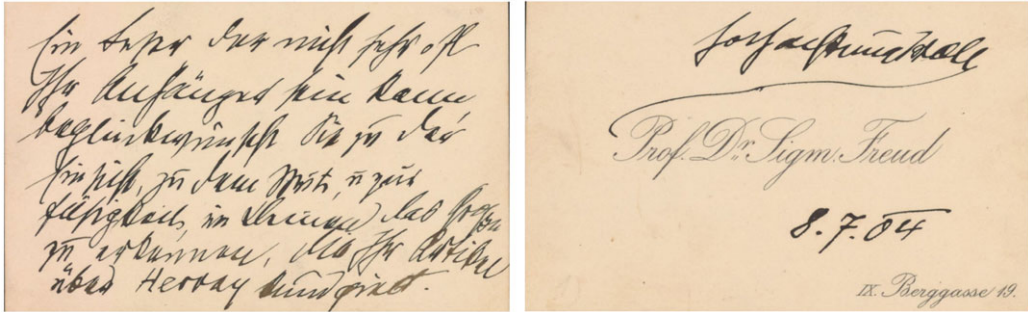 Ein Leser der nicht sehr oft
Ihr Anhänger sein kann
beglückwünscht Sie zu der
Einsicht, zu dem Mut, u zur
Fähigkeit, im Kleinen das Große
zu erkennen, die Ihr Artikel
über Hervay beweist.
hochachtungsvoll
Prof. Dr. Sigm. Freud
8.7.04
IX. Berggasse 19.